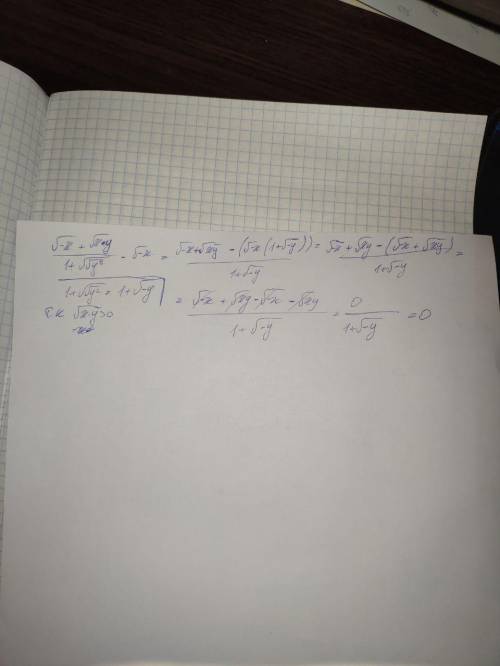 (√-x + √xy)/(1+√√y²) - √-x = (√-x+√xy - (√-x(1+√-y)))/(1+√-y) = (√-x+√xy-(√-x+√xy))/(1+√-y) =
1+√√y² = 1+√-y
= (√-x+√xy-√-x-√xy)/(1+√-y) = 0/(1+√-y) = 0
т.к √x·y>0